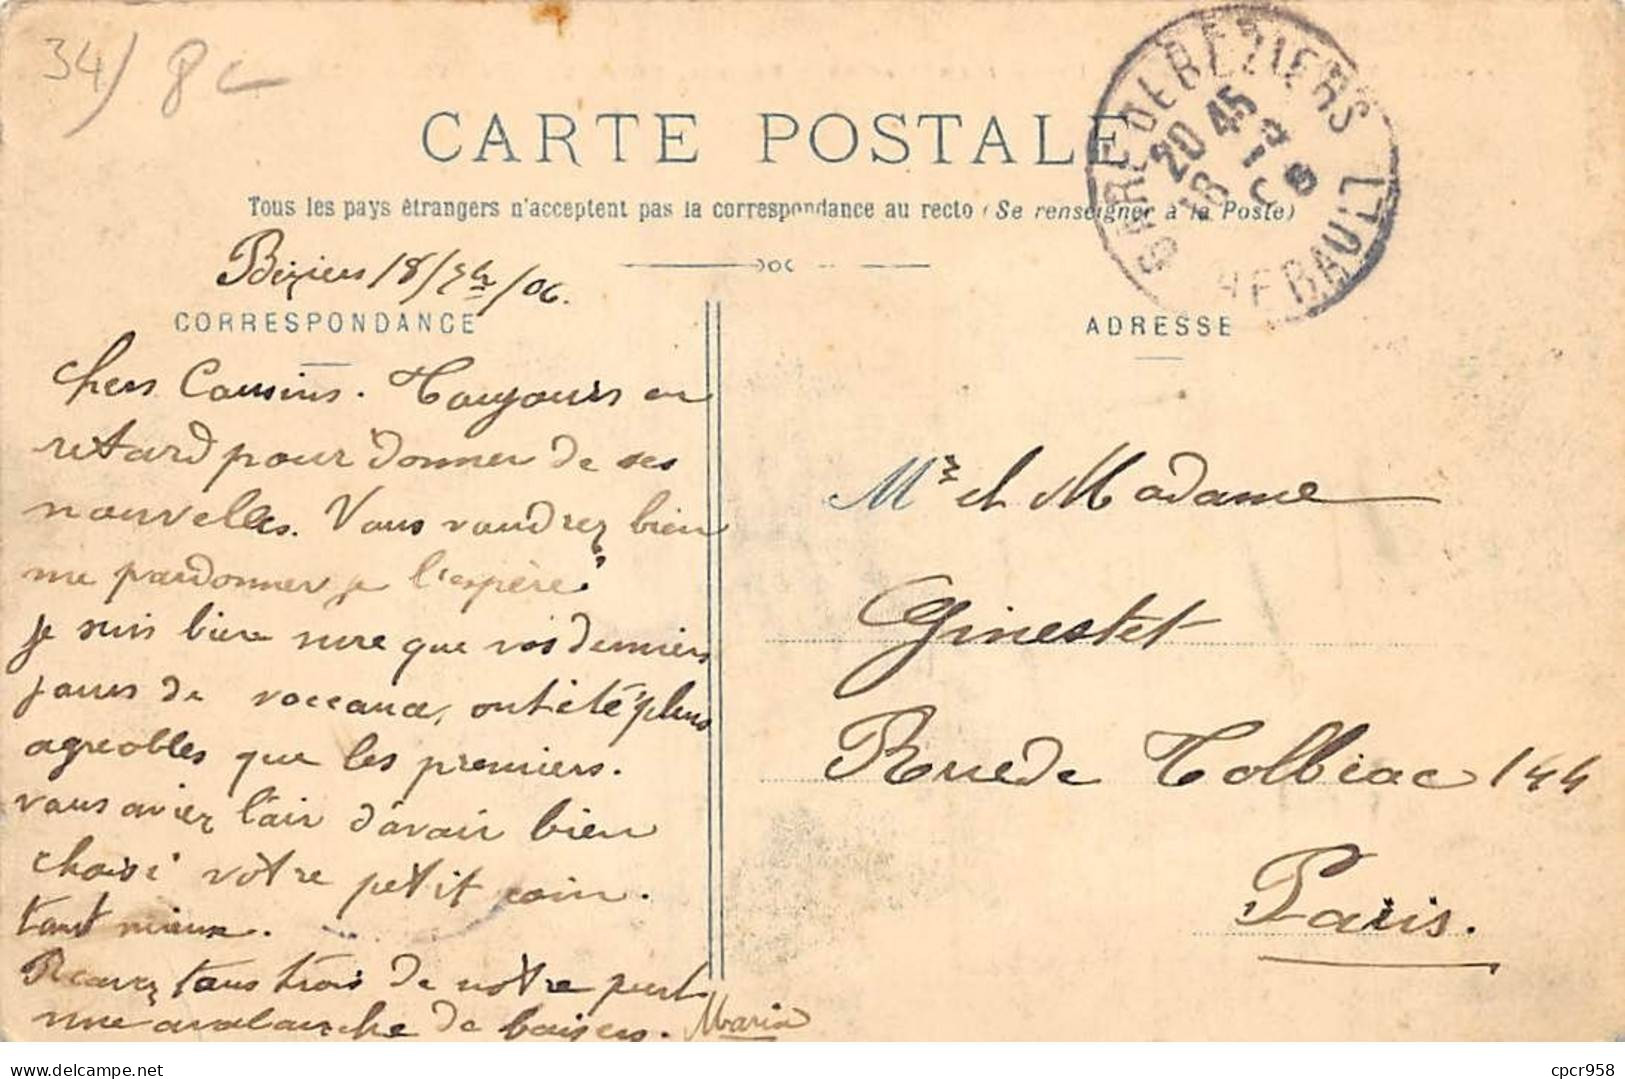 34/ 8
CARTE POSTALE
Tous les pays étrangers n'acceptent pas la correspondance au recto (Se renseigner à la Poste)
GARE DE BEZIERS
20 45
18 -9
06
HERAULT
Béziers 18/7bre/06.
CORRESPONDANCE
ADRESSE
Chers Cousins. Toujours en
retard pour donner de ses
nouvelles. Vous voudrez bien
me pardonner je l'espère
je suis bien sure que vos derniers
jours de vaccance, ont été plus
agreables que les premiers.
vous aviez l'air d'avoir bien
choisi votre petit coin.
tant mieux.
Recevez tous trois de notre part
une avalanche de baisers. Maria
Mr et Madame
Ginestet
Rue de Tolbiac 144
Paris.
cpcr958